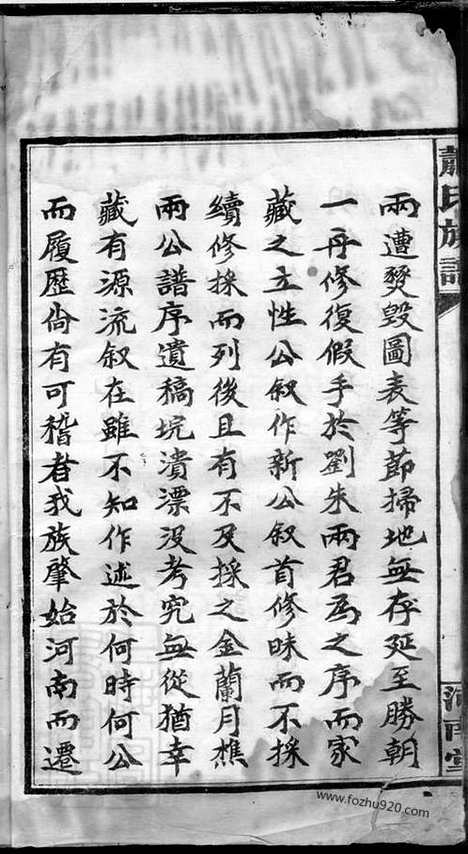 蕭氏族譜
河南堂
兩遭燹毀圖表等節掃地無存延至勝朝
一再修復假手於劉朱兩君為之序而家
藏之立性公叙作新公叙首修昧而不採
續修採而列後且有不及採之金蘭月樵
兩公譜序遺稿坑潰漂没考究無從猶幸
藏有源流叙在雖不知作述於何時何公
而履歷尙有可稽者我族肇始河南而遷
www.fozhu920.com